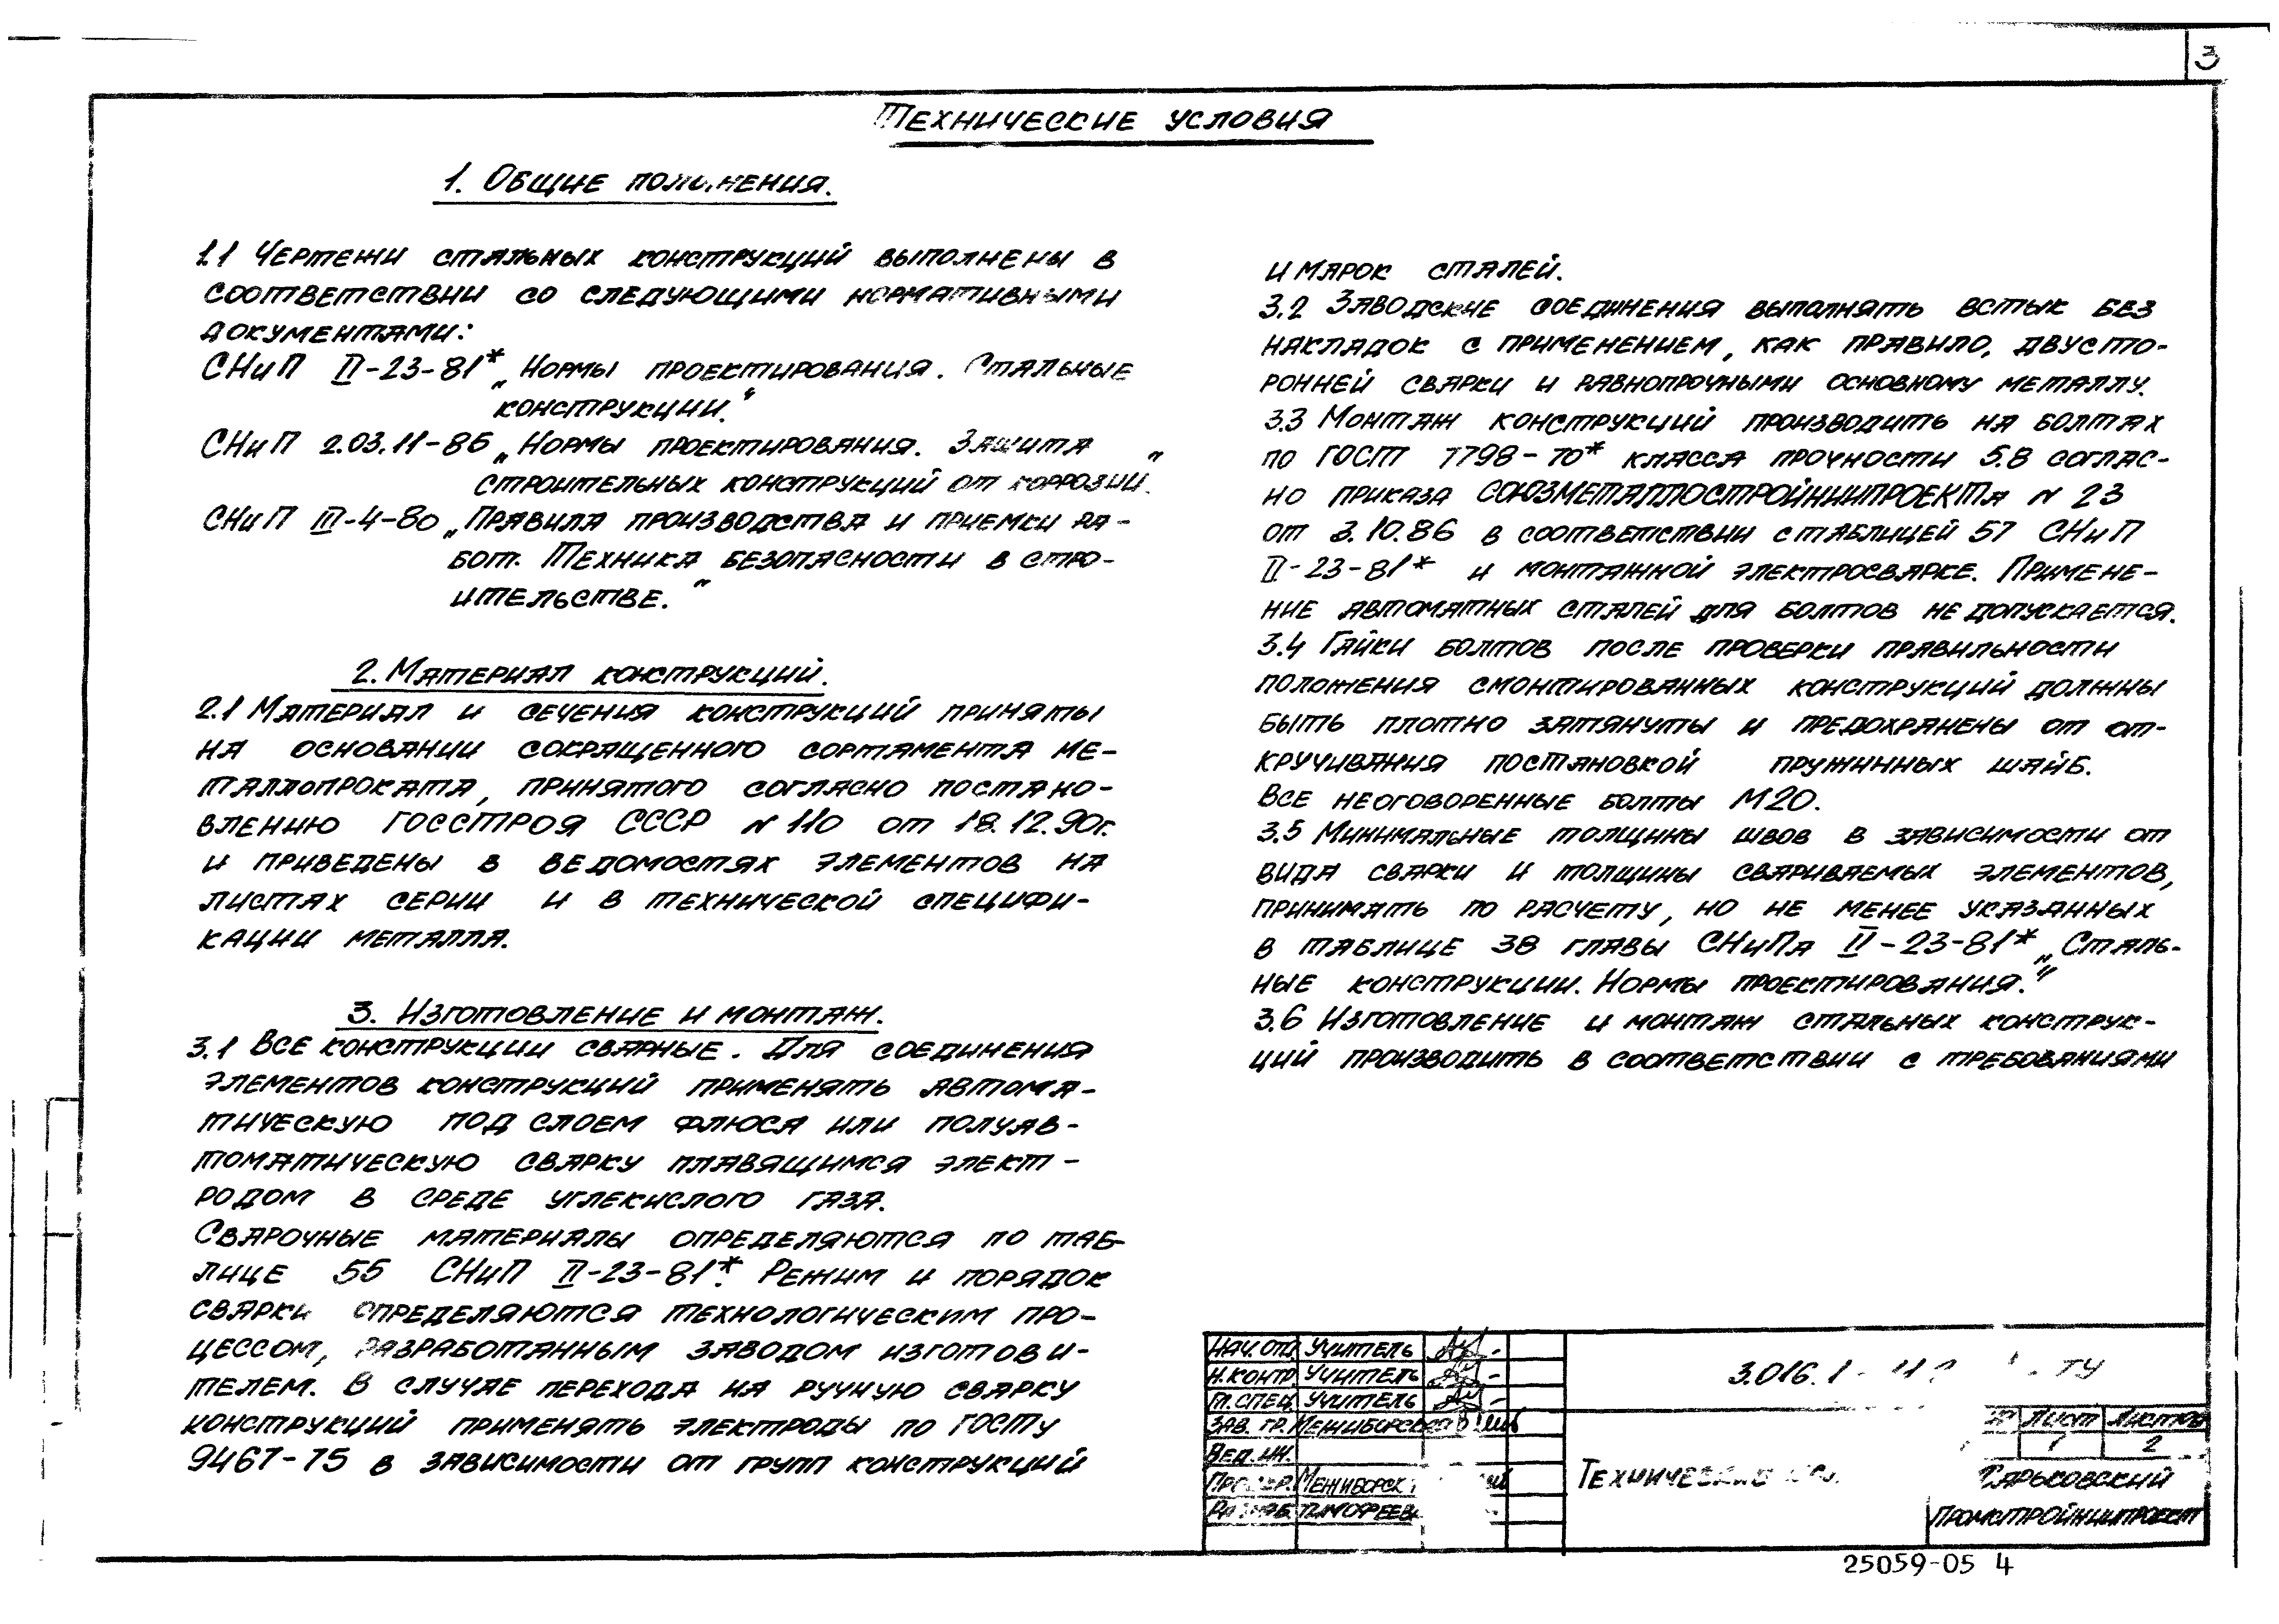 3
Технические условия
1. Общие положения.
1.1 Чертежи стальных конструкций выполнены в
соответствии со следующими нормативными
документами:
СНиП II-23-81* „Нормы проектирования. Стальные
конструкции."
СНиП 2.03.11-85 „Нормы проектирования. Защита
строительных конструкций от коррозии."
СНиП III-4-80 „Правила производства и приемки ра-
бот. Техника безопасности в стро-
ительстве."
2. Материал конструкций.
2.1 Материал и сечения конструкций приняты
на основании сокращенного сортамента ме-
таллопроката, принятого согласно постано-
влению Госстроя СССР N 110 от 18.12.90г.
и приведены в ведомостях элементов на
листах серии и в технической специфи-
кации металла.
3. Изготовление и монтаж.
3.1 Все конструкции сварные. Для соединения
элементов конструкций применять автома-
тическую под слоем флюса или полуав-
томатическую сварку плавящимся элект-
родом в среде углекислого газа.
Сварочные материалы определяются по таб-
лице 55 СНиП II-23-81*. Режим и порядок
сварки определяются технологическим про-
цессом, разработанным заводом изготови-
телем. В случае перехода на ручную сварку
конструкций применять электроды по ГОСТу
9467-75 в зависимости от групп конструкций
и марок сталей.
3.2 Заводские соединения выполнять встык без
накладок с применением, как правило, двусто-
ронней сварки и равнопрочными основному металлу.
3.3 Монтаж конструкций производить на болтах
по ГОСТ 7798-70* класса прочности 5.8 соглас-
но приказа СОЮЗМЕТАЛЛОСТРОЙНИИПРОЕКТа N 23
от 3.10.86 в соответствии с таблицей 57 СНиП
II-23-81* и монтажной электросварке. Примене-
ние автоматных сталей для болтов не допускается.
3.4 Гайки болтов после проверки правильности
положения смонтированных конструкций должны
быть плотно затянуты и предохранены от от-
кручивания постановкой пружинных шайб.
Все неоговоренные болты М20.
3.5 Минимальные толщины швов в зависимости от
вида сварки и толщины свариваемых элементов,
принимать по расчету, но не менее указанных
в таблице 38 главы СНиПа II-23-81* „Сталь-
ные конструкции. Нормы проектирования."
3.6 Изготовление и монтаж стальных конструк-
ций производить в соответствии с требованиями
Нач. отд. Учитель
Н.контр. Учитель
Гл. спец. Учитель
Зав. гр. Межиборская
Вед. ин.
Провер. Межиборск
Разраб. Тимофеева
3.016.1 - ТУ
Технические
Лист Листов
1 2
Харьковский
Промстройниипроект
25059-05 4